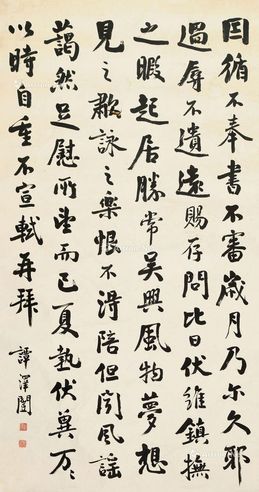 因循不奉書不審歲月乃爾久耶
過辱不遺遠賜存問比日伏維鎮撫
之暇起居勝常吳興風物夢想
見之歌詠之樂恨不得陪但聞風謠
藹然足慰所望而已夏熱伏冀万万
以時自重不宣軾再拜
譚澤闓